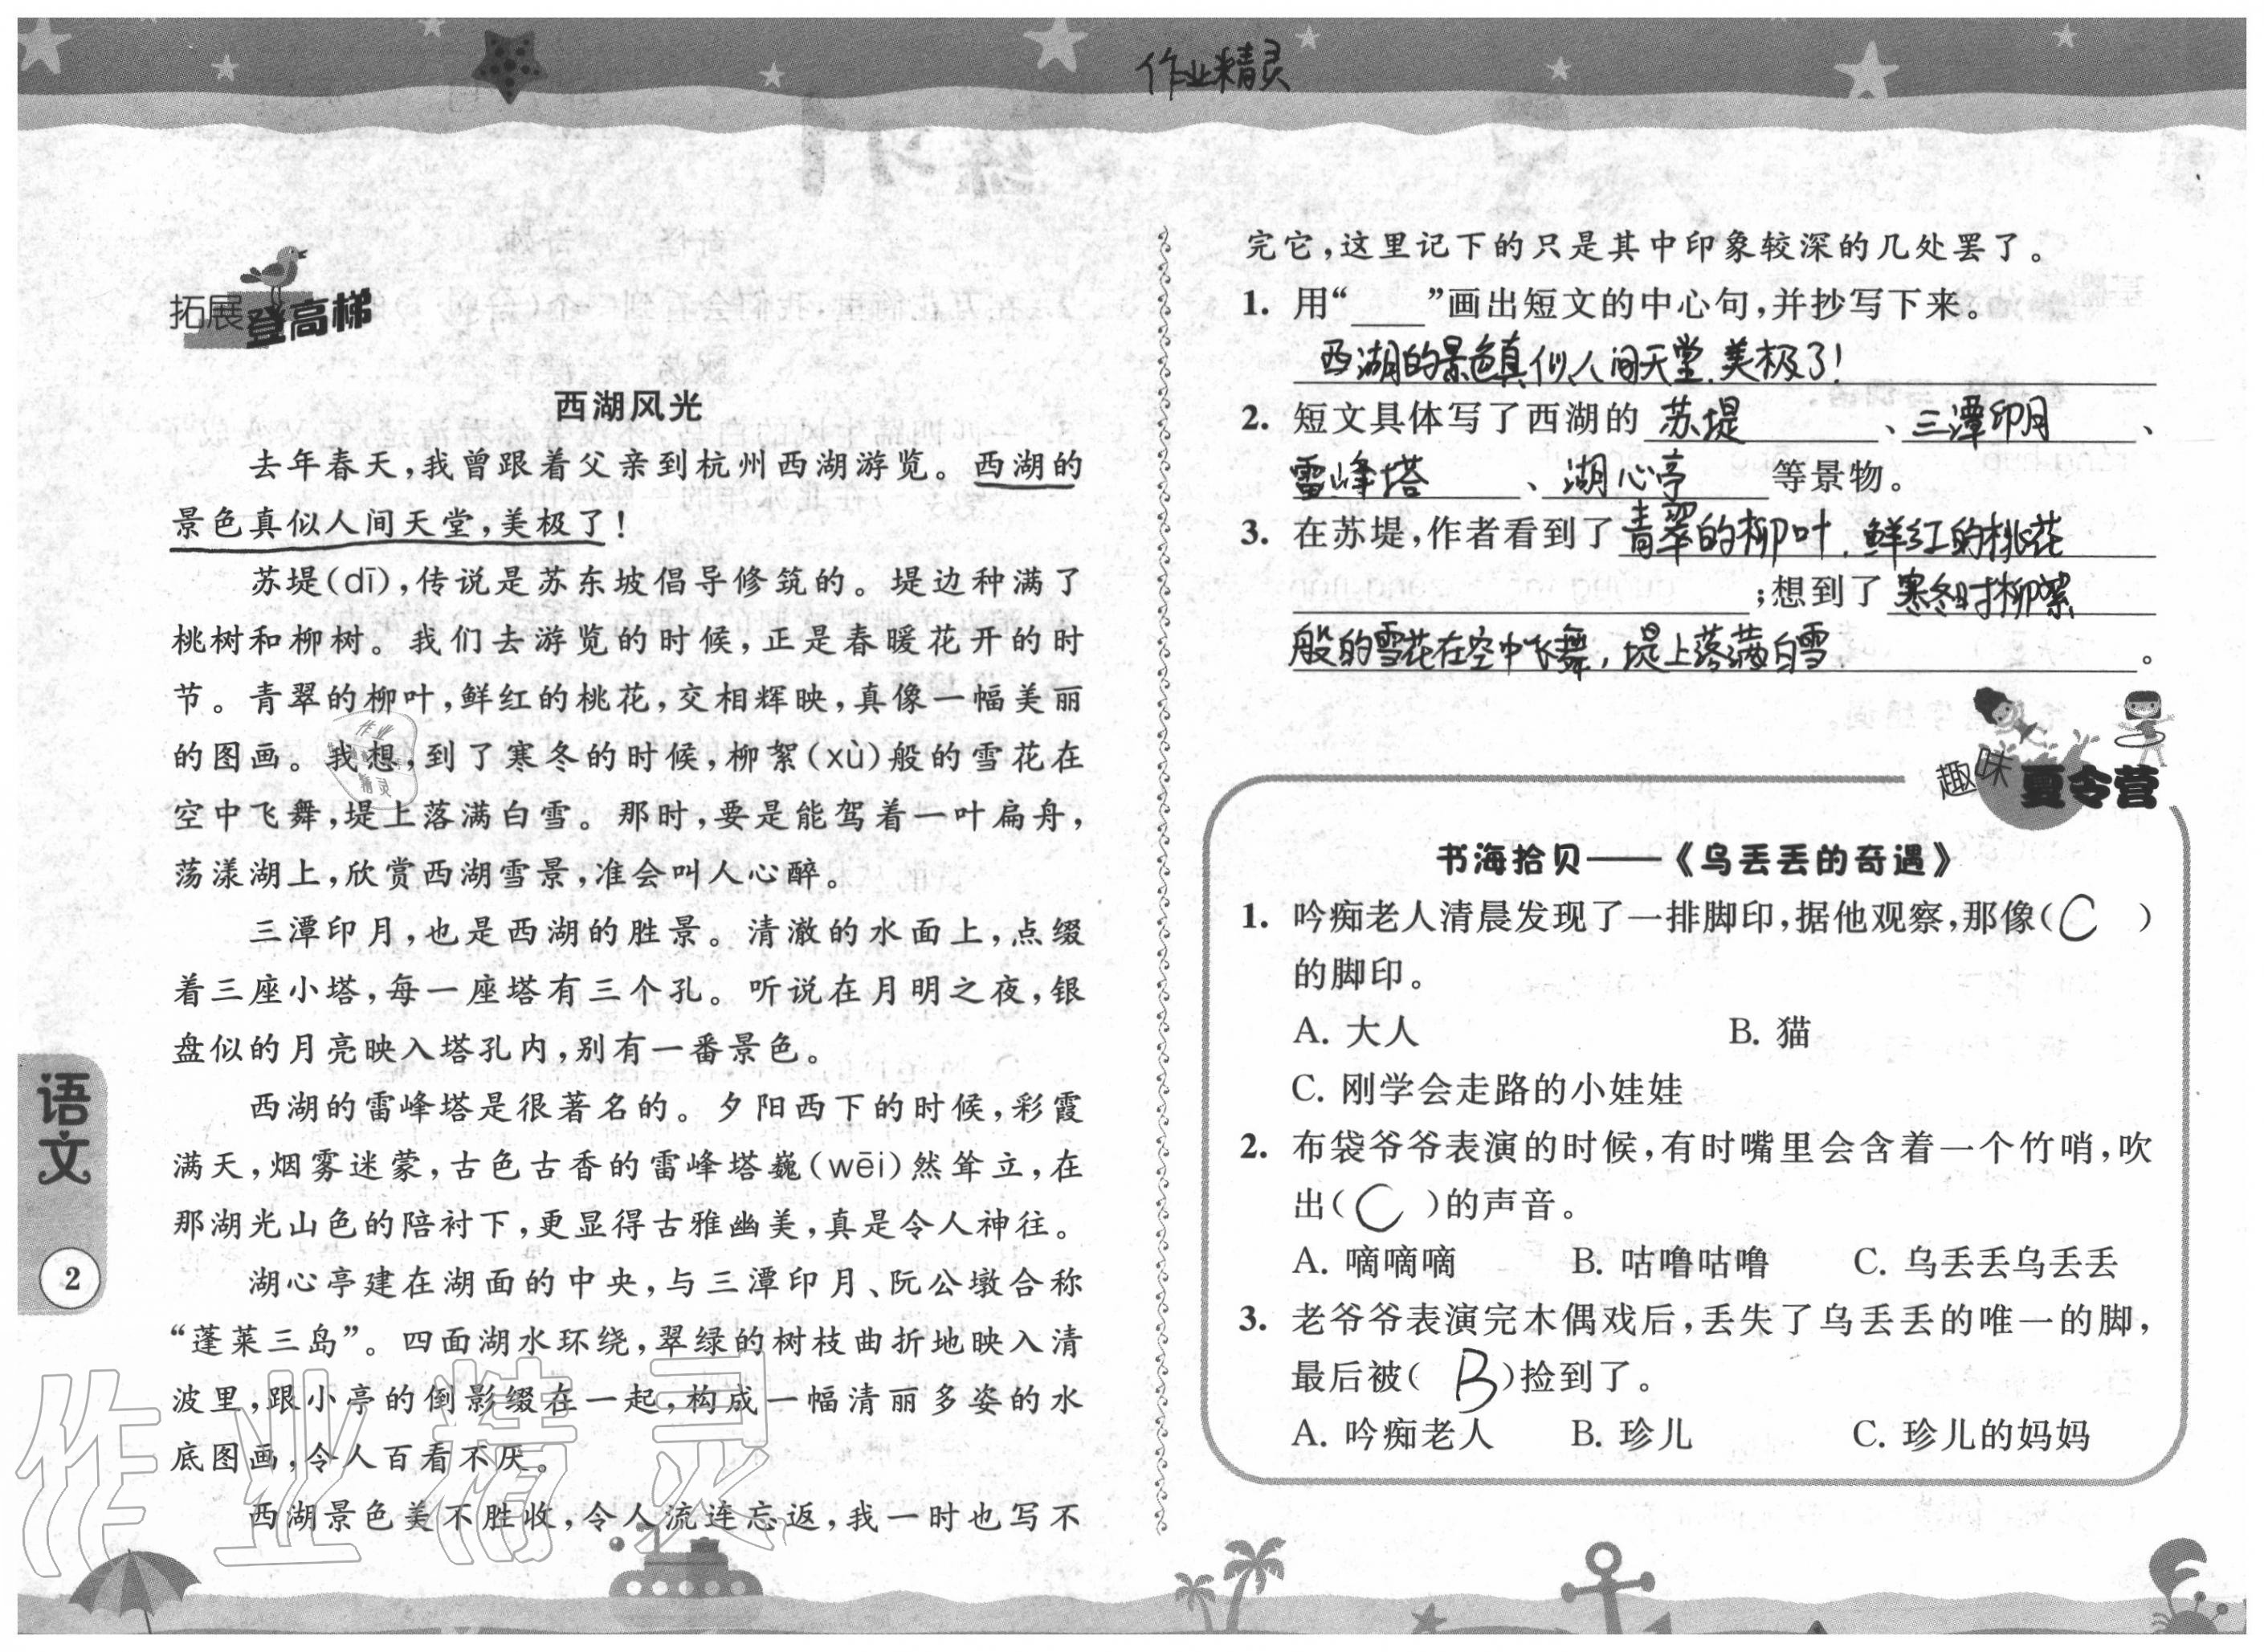 作业精灵
拓展登高梯
西湖风光
去年春天,我曾跟着父亲到杭州西湖游览。西湖的
景色真似人间天堂,美极了!
苏堤(dī),传说是苏东坡倡导修筑的。堤边种满了
桃树和柳树。我们去游览的时候,正是春暖花开的时
节。青翠的柳叶,鲜红的桃花,交相辉映,真像一幅美丽
的图画。我想,到了寒冬的时候,柳絮(xù)般的雪花在
空中飞舞,堤上落满白雪。那时,要是能驾着一叶扁舟,
荡漾湖上,欣赏西湖雪景,准会叫人心醉。
三潭印月,也是西湖的胜景。清澈的水面上,点缀
着三座小塔,每一座塔有三个孔。听说在月明之夜,银
盘似的月亮映入塔孔内,别有一番景色。
西湖的雷峰塔是很著名的。夕阳西下的时候,彩霞
满天,烟雾迷蒙,古色古香的雷峰塔巍(wēi)然耸立,在
那湖光山色的陪衬下,更显得古雅幽美,真是令人神往。
湖心亭建在湖面的中央,与三潭印月、阮公墩合称
“蓬莱三岛”。四面湖水环绕,翠绿的树枝曲折地映入清
波里,跟小亭的倒影缀在一起,构成一幅清丽多姿的水
底图画,令人百看不厌。
西湖景色美不胜收,令人流连忘返,我一时也写不
完它,这里记下的只是其中印象较深的几处罢了。
1. 用“____”画出短文的中心句,并抄写下来。
西湖的景色真似人间天堂,美极了!
2. 短文具体写了西湖的 苏堤 、三潭印月 、
雷峰塔 、湖心亭 等景物。
3. 在苏堤,作者看到了青翠的柳叶,鲜红的桃花
;想到了 寒冬时柳絮
般的雪花在空中飞舞,堤上落满白雪 。
趣味夏令营
书海拾贝——《乌丢丢的奇遇》
1. 吟痴老人清晨发现了一排脚印,据他观察,那像( C )
的脚印。
A. 大人 B. 猫
C. 刚学会走路的小娃娃
2. 布袋爷爷表演的时候,有时嘴里会含着一个竹哨,吹
出( C )的声音。
A. 嘀嘀嘀 B. 咕噜咕噜 C. 乌丢丢乌丢丢
3. 老爷爷表演完木偶戏后,丢失了乌丢丢的唯一的脚,
最后被( B )捡到了。
A. 吟痴老人 B. 珍儿 C. 珍儿的妈妈
语文
2
作业精灵
作业
精灵